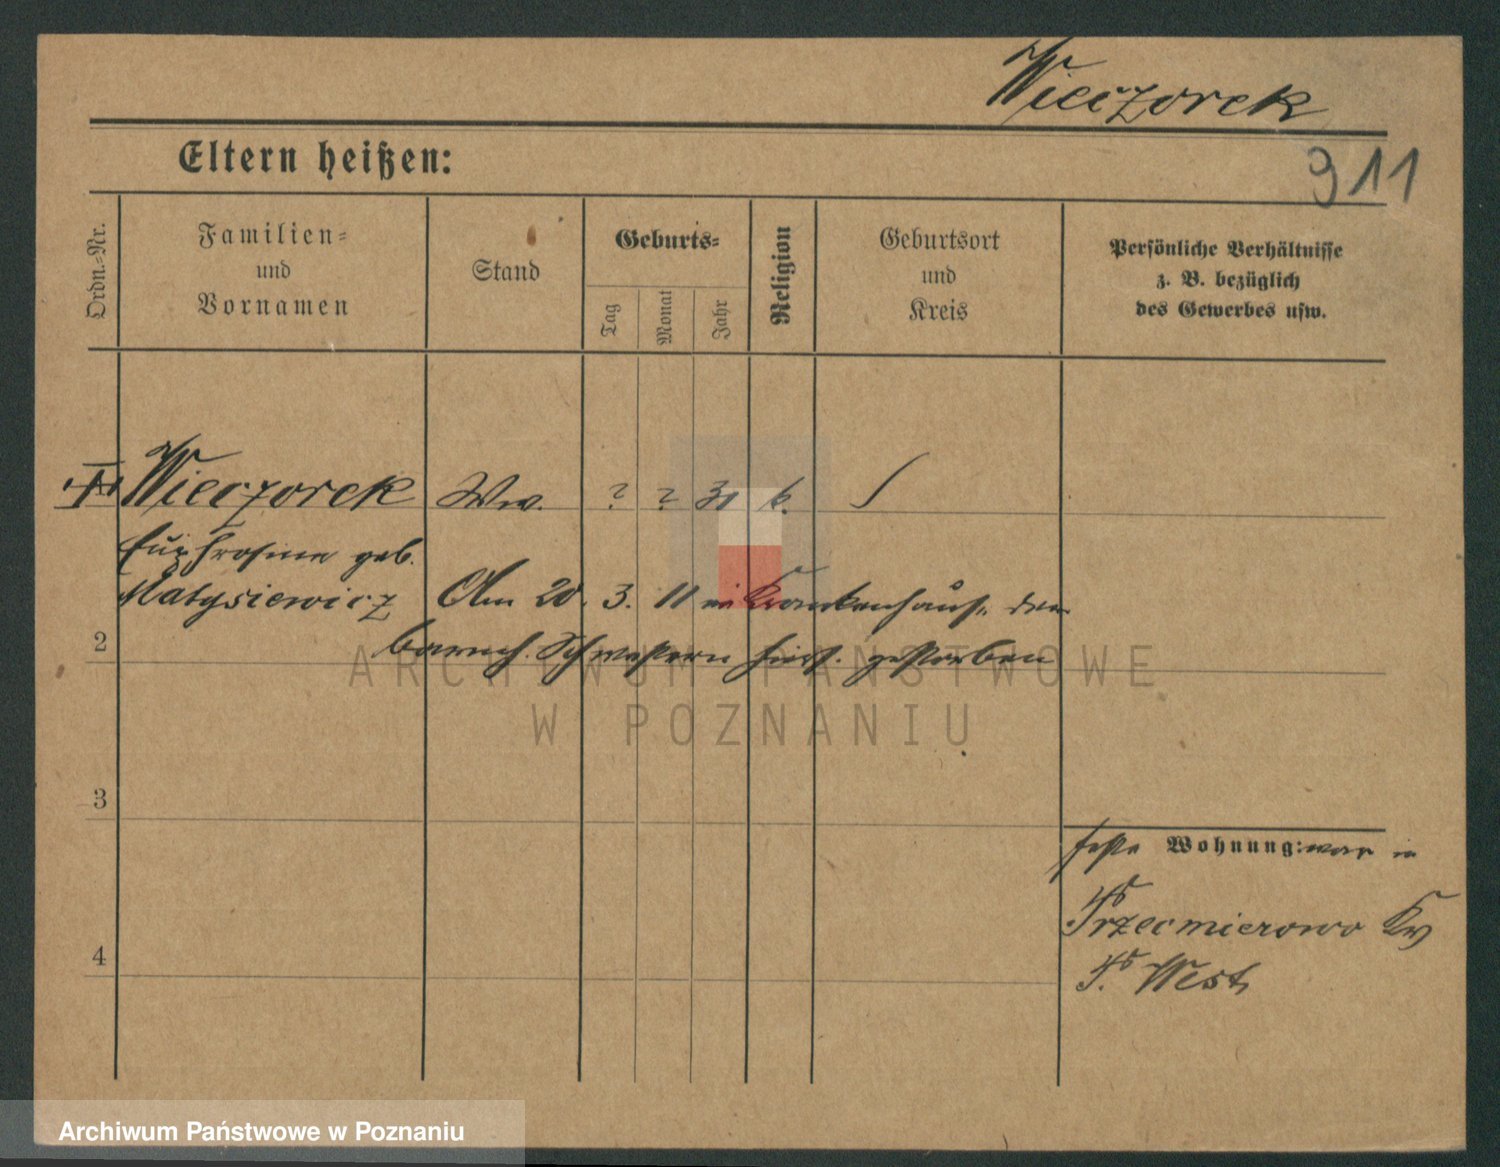 Wieczorek
911
Eltern heißen:
Ordn.-Nr.
Familien-
und
Vornamen
Stand
Geburts-
Tag
Monat
Jahr
Religion
Geburtsort
und
Kreis
Persönliche Verhältnisse
z. B. bezüglich
des Gewerbes usw.
Wieczorek Ww. ? ? 31 k.
Euphrosine geb.
Matysiewicz Am 20. 3. 11 im Krankenhause der
barmh. Schwestern hies. gestorben
2
3
4
feste Wohnung: war in
Przecmierowo Kr
P. West
ARCHIWUM PAŃSTWOWE
W POZNANIU
Archiwum Państwowe w Poznaniu